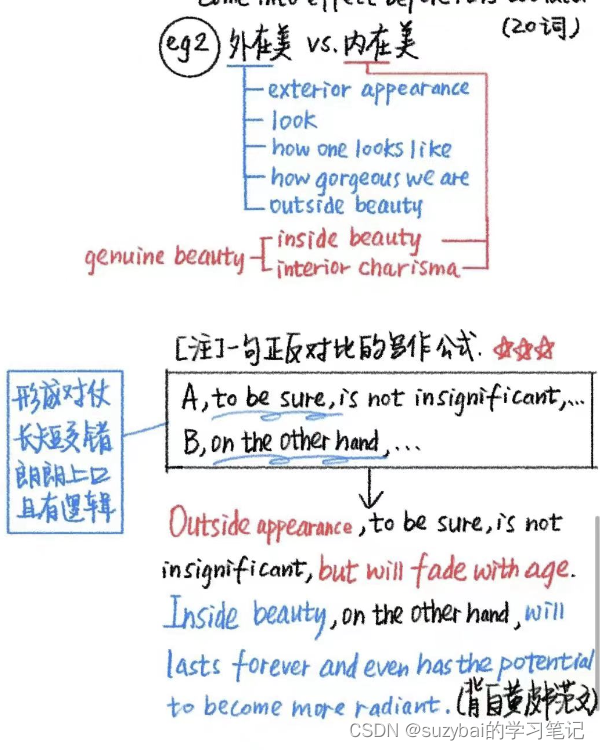 (20词)
eg2 外在美 vs. 内在美
exterior appearance
look
how one looks like
how gorgeous we are
outside beauty
genuine beauty
inside beauty
interior charisma
[注]一句正反对比的写作公式. ☆☆☆
形成对仗
长短交错
朗朗上口
且有逻辑
A, to be sure, is not insignificant,...
B, on the other hand,...
Outside appearance, to be sure, is not
insignificant, but will fade with age.
Inside beauty, on the other hand, will
lasts forever and even has the potential
to become more radiant. (背自黄皮书范文)
CSDN @suzybai的学习笔记